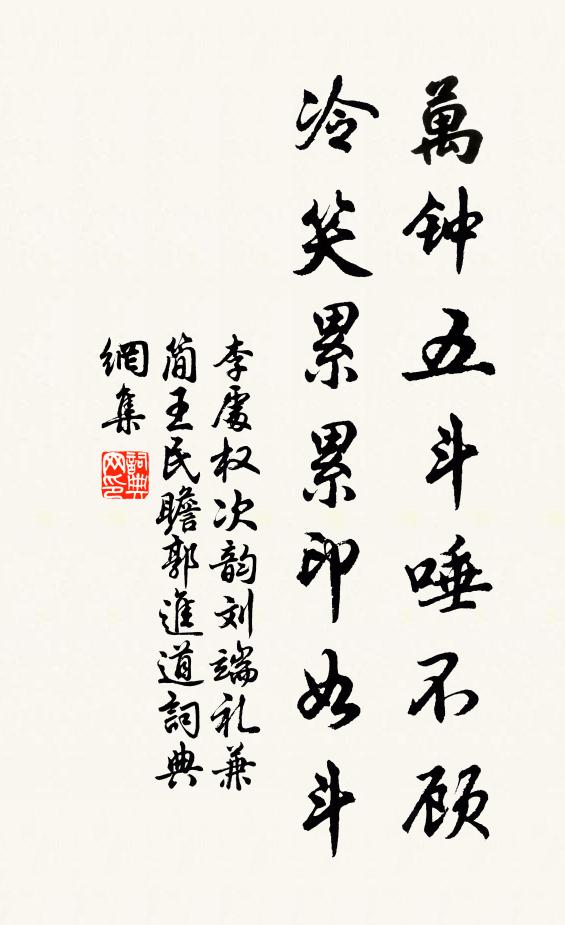 萬钟五斗唾不顾
冷笑累累印如斗
李處权次韵刘端礼兼
简王民瞻郭進道詞典
網集
詞典网印